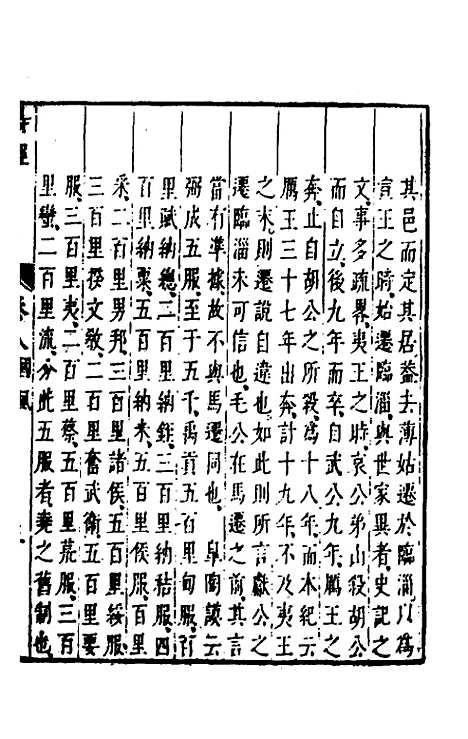 其邑而定其居蓋去薄姑遷於臨淄以為
宣王之時始遷臨淄與世家異者史記之
文事多疏畧夷王之時哀公弟山殺胡公
而自立後九年而卒自武公九年厲王之
奔止自胡公之所殺為十八年而本紀云
厲王三十七年出奔計十九年不及夷王
之末則遷說自違也如此則所言獻公之
遷臨淄未可信也毛公在馬遷之前其言
當有準據故不與馬遷同也 臯陶謨云
弼成五服至于五千禹貢五百里甸服百
里賦納總二百里納銍三百里納秸服四
百里納粟五百里納米五百里侯服百里
采二百里男邦三百里諸侯五百里綏服
三百里揆文敎二百里奮武衛五百里要
服三百里夷二百里蔡五百里荒服三百
里蠻二百里流分此五服者堯之舊制也
詩經 卷八國風